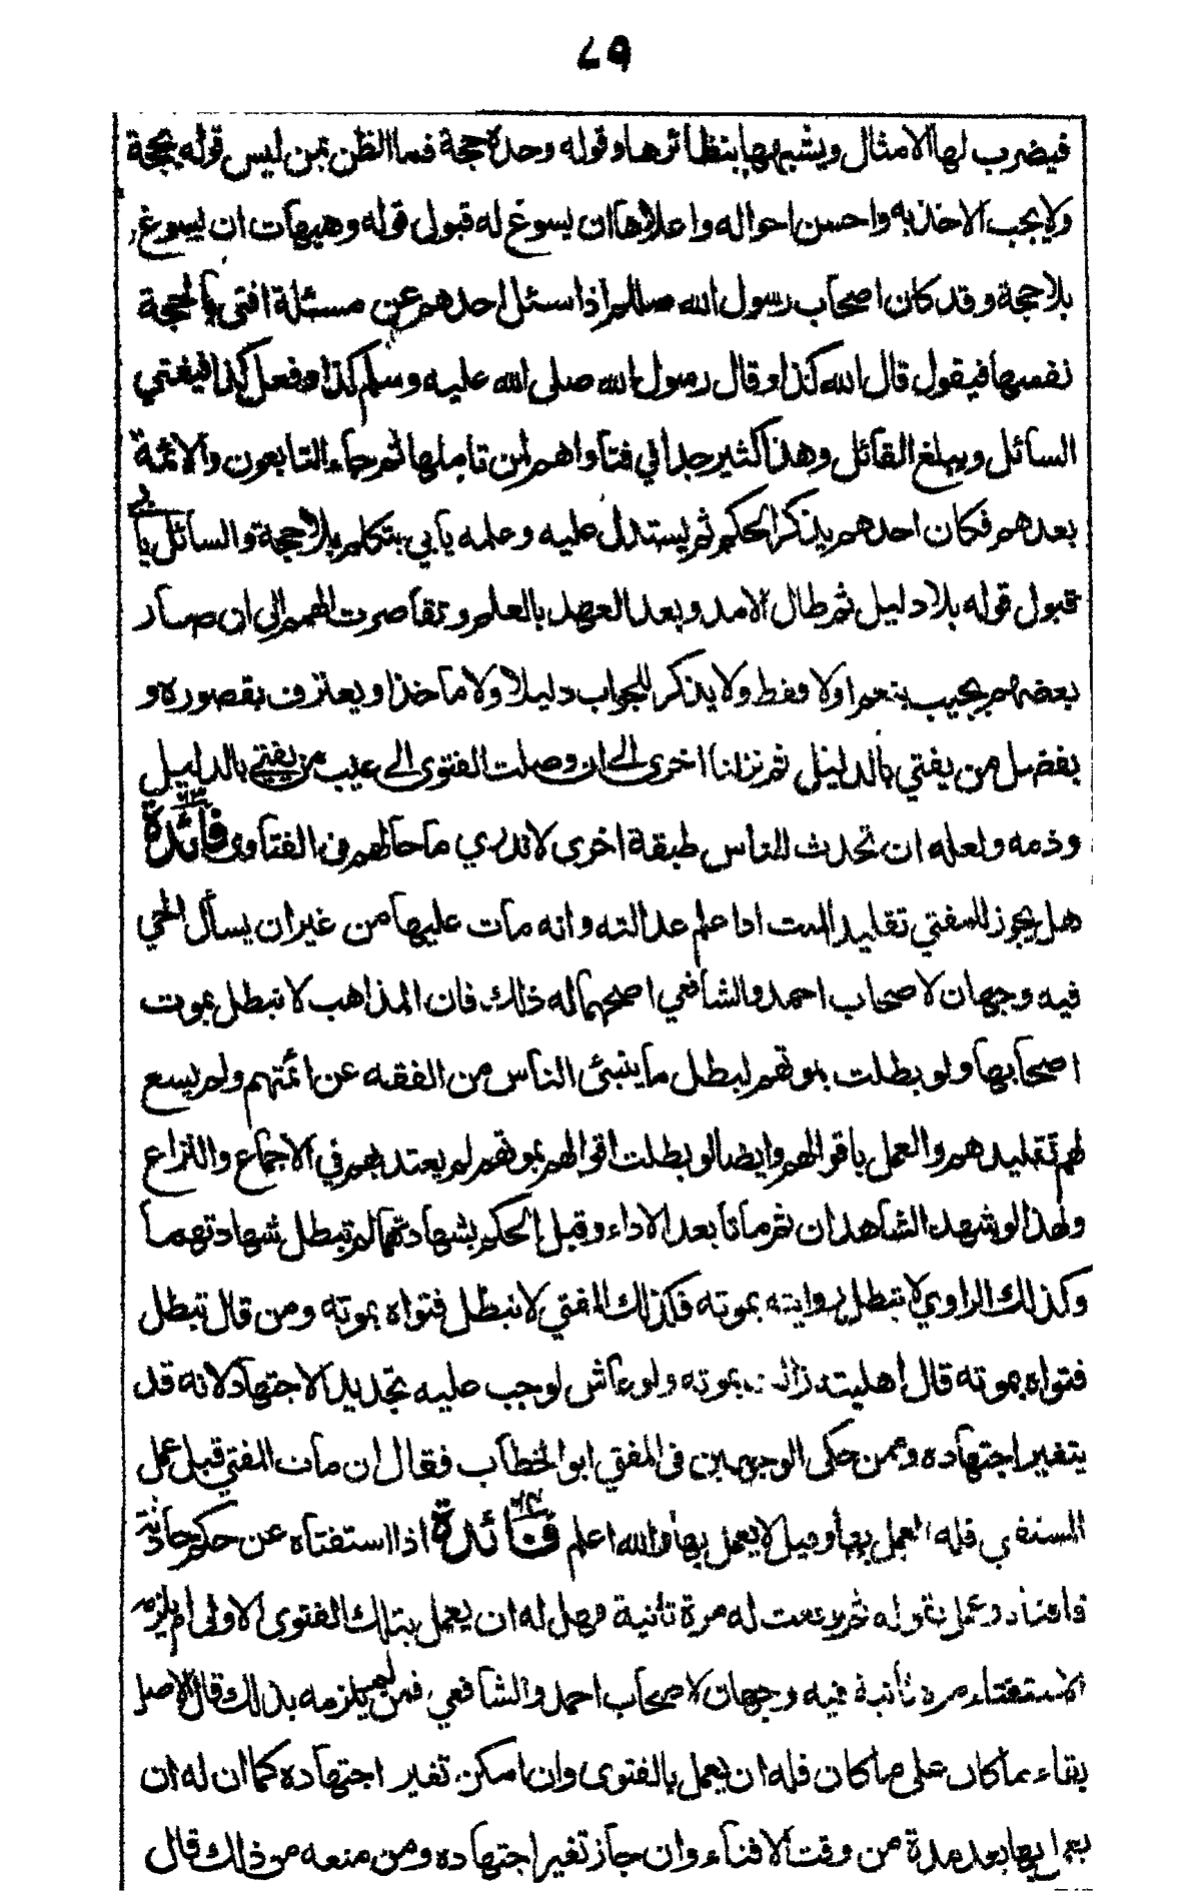 ٧٩
فيضرب لها الامثال ويشبهها بنظائرها وقوله وحده حجة فما الظن بمن ليس قوله بحجة
ولا يجب الاخذ به واحسن احواله واعلاها ان يسوغ له قبول قوله وهيهات ان يسوغ
بلا حجة وقد كان اصحاب رسول الله صللم اذا سئل احدهم عن مسئلة افتى بالحجة
نفسها فيقول قال الله كذا وقال رسول الله صلى الله عليه وسلم كذا وفعل كذا فيفتي
السائل ويبلغ القائل وهذا كثير جدا في فتاواهم لمن تاملها ثم جاء التابعون والائمة
بعدهم فكان احدهم يذكر الحكم ثم يستدل عليه وعلمه يابى يتكلم بلا حجة والسائل يابى
قبول قوله بلا دليل ثم طال الامد وبعد العهد بالعلم وتقاصرت الهمم الى ان صار
بعضهم يجيب بنعم او لا فقط ولا يذكر للجواب دليلا ولا ماخذا ويعترف بقصوره و
يفضل من يفتي بالدليل ثم نزلنا اخرى الى ان وصلت الفتوى الى عيب من يفتي بالدليل
وذمه ولعله ان تحدث للناس طبقة اخرى لا ندري ما حالهم في الفتاوى فائدة
هل يجوز للمفتي تقليد الميت اذا علم عدالته وانه مات عليها من غير ان يسأل الحي
فيه وجهان لاصحاب احمد والشافعي اصحهما له ذلك فان المذاهب لا تبطل بموت
اصحابها ولو بطلت بموتهم لبطل ما ينبئ الناس من الفقه عن ائمتهم ولم يسع
لهم تقليدهم والعمل باقوالهم وايضا لو بطلت اقوالهم بموتهم لم يعتد بهم في الاجماع والنزاع
ولهذا لو شهد الشاهدان ثم ماتا بعد الاداء وقبل الحكم بشهادتهما لم تبطل شهادتهما
وكذلك الراوي لا تبطل روايته بموته فكذلك المفتي لا تبطل فتواه بموته ومن قال تبطل
فتواه بموته قال اهليته زالت بموته ولو عاش لوجب عليه تجديد الاجتهاد لانه قد
يتغير اجتهاده وممن حكى الوجهين في المفتي ابو الخطاب فقال ان مات المفتي قبل عمل
المستفتي فله العمل بها وقيل لا يعمل بها والله اعلم فائدة اذا استفتاه عن حكم حادثة
فافتاه وعمل بقوله ثم وقعت له مرة ثانية فهل له ان يعمل بتلك الفتوى الاولى ام يلزمه
الاستفتاء مرة ثانية فيه وجهان لاصحاب احمد والشافعي فمن لم يلزمه بذلك قال الاصل
بقاء ما كان على ما كان فله ان يعمل بالفتوى وان امكن تغير اجتهاده كما ان له ان
يعمل بها بعد مدة من وقت الافتاء وان جاز تغير اجتهاده ومن منعه من ذلك قال